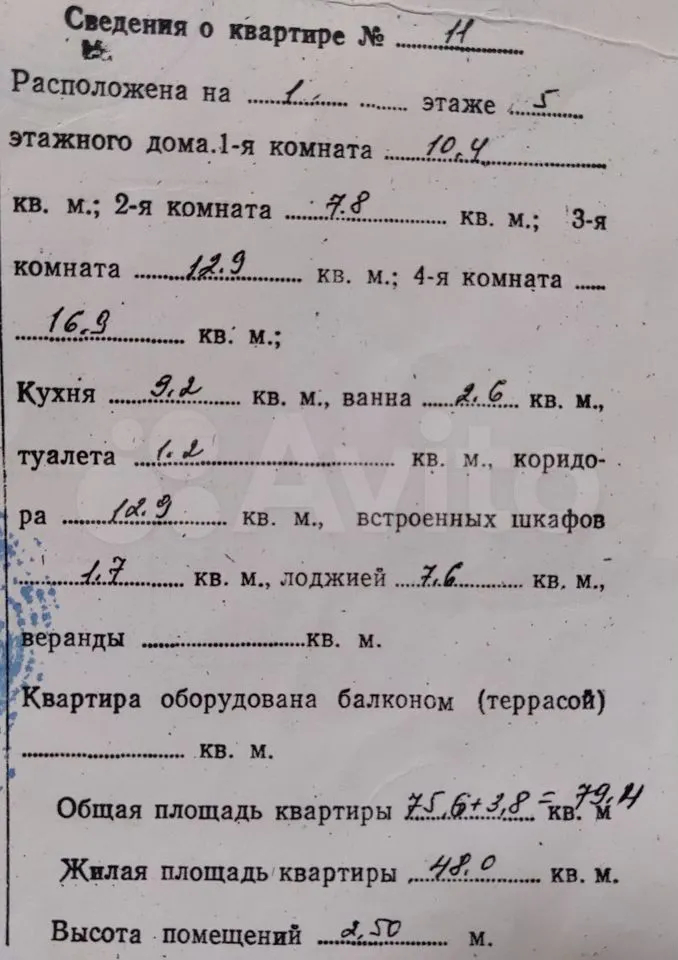 Сведения о квартире № 11
Расположена на 1 этаже 5
этажного дома. 1-я комната 10,4
кв. м.; 2-я комната 7.8 кв. м.; 3-я
комната 12.9 кв. м.; 4-я комната
16.9 кв. м.;
Кухня 9.2 кв. м., ванна 2.6 кв. м.,
туалета 1.2 кв. м., коридо-
ра 12.9 кв. м., встроенных шкафов
1.7 кв. м., лоджией 7.6 кв. м.,
веранды кв. м.
Квартира оборудована балконом (террасой)
кв. м.
Общая площадь квартиры 75,6+3,8 = 79,4 кв. м
Жилая площадь квартиры 48.0 кв. м.
Высота помещений 2,50 м.
Avito